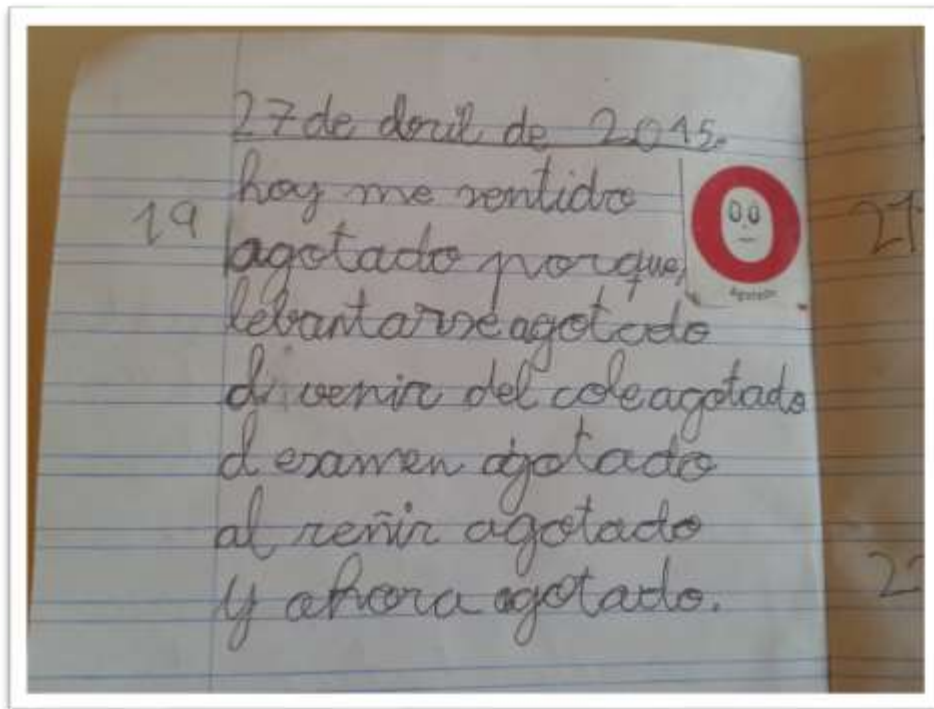 27 de abril de 2015.
hoy me sentido
19 agotado porque,
lebantarse agotado
di venir del cole agotado
d examen agotado
al reñir agotado
y ahora agotado.
Agotado
21